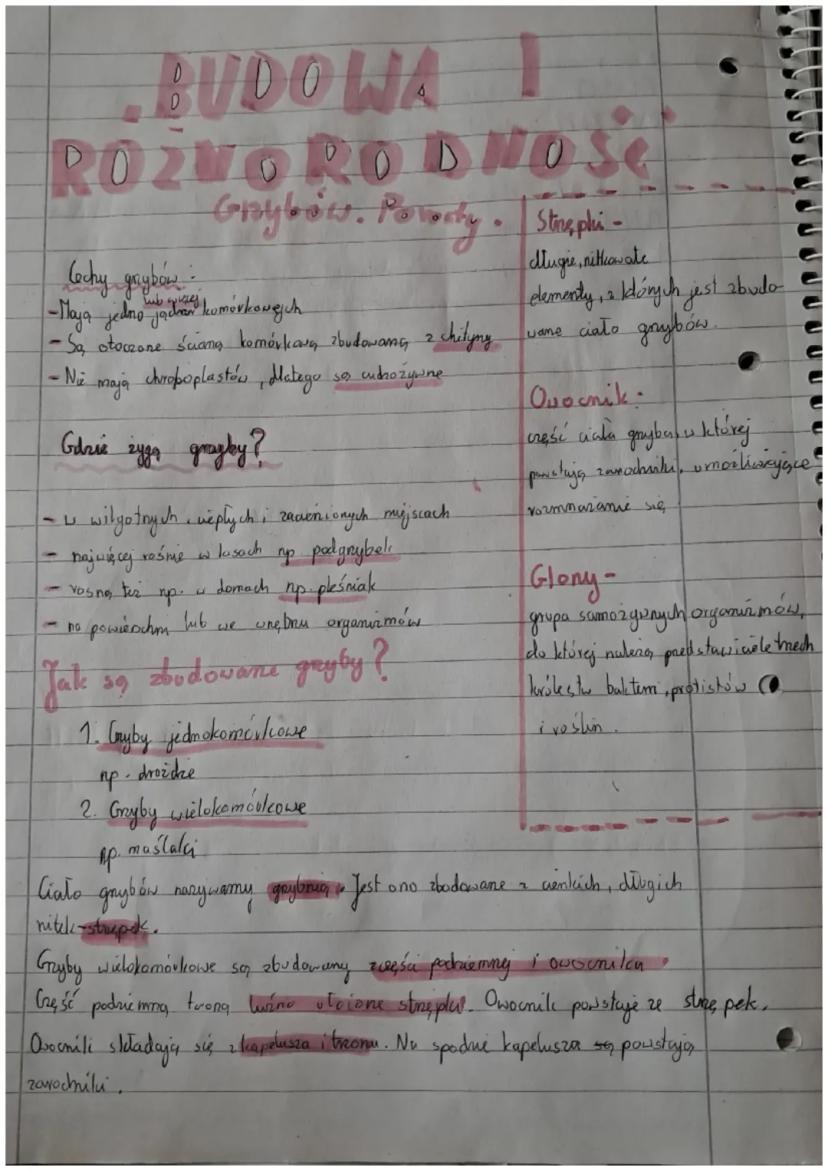 BUDOWA I
RÓŻNORODNOŚĆ
Grzybów. Porosty.
Cechy grzybów:
- Mają jedno lub więcej jąder komórkowych
- Są otoczone ścianą komórkową zbudowaną z chityny
- Nie mają chroboplastów, dlatego są cudzożywne
Gdzie żyją grzyby?
- w wilgotnych, ciepłych i zacienionych miejscach
- najwięcej rośnie w lasach np podgrzybek
- rosną też np. w domach np. pleśniak
- na powierzchni lub we wnętrzu organizmów
Jak są zbudowane grzyby?
1. Grzyby jednokomórkowe
np. drożdże
2. Grzyby wielokomórkowe
np. maślaki
Strzępki -
długie, nitkowate
elementy, z których jest zbudo-
wane ciało grzybów.
Owocnik -
część ciała grzyba, w której
powstają zarodniki, umożliwiające
rozmnażanie się
Glony -
grupa samożywnych organizmów,
do której należą przedstawiciele trzech
królestw bakterii, protistów
i roślin.
Ciało grzybów nazywamy grzybnią. Jest ono zbodowane z cienkich, długich
nitek - strzępek.
Grzyby wielokomórkowe są zbudowany z części podziemnej i owocnika.
Część podziemną tworzą luźno ułożone strzępki. Owocnik powstaje ze strzępek.
Owocniki składają się z kapelusza i trzonu. Na spodzie kapelusza są powstają
zarodniki.